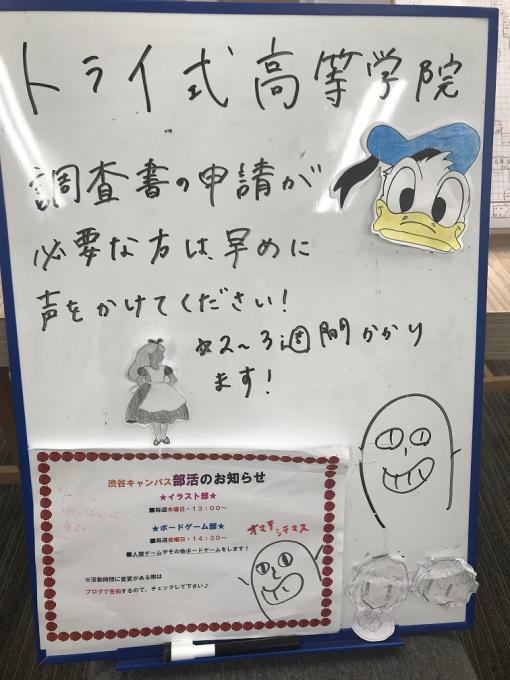 トライ式高等学院
調査書の申請が
必要な方は、早めに
声をかけてください!
※2〜3週間かかり
ます!
渋谷キャンパス部活のお知らせ
★イラスト部★
■毎週木曜日・13:00〜
★ボードゲーム部★
■毎週金曜日・14:30〜
■人狼ゲームやその他ボードゲームをします!
オマチシテマス
※活動時間に変更がある際は
ブログで告知するので、チェックして下さい♪